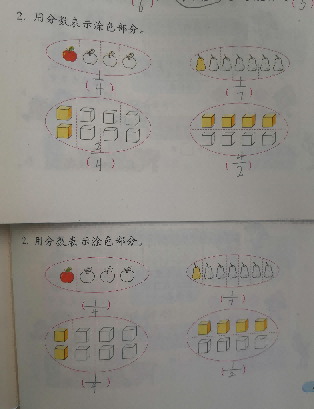 2. 用分数表示涂色部分。
(1/4) (1/7)
(2/4) (4/2)
2. 用分数表示涂色部分。
(1/4) (1/7)